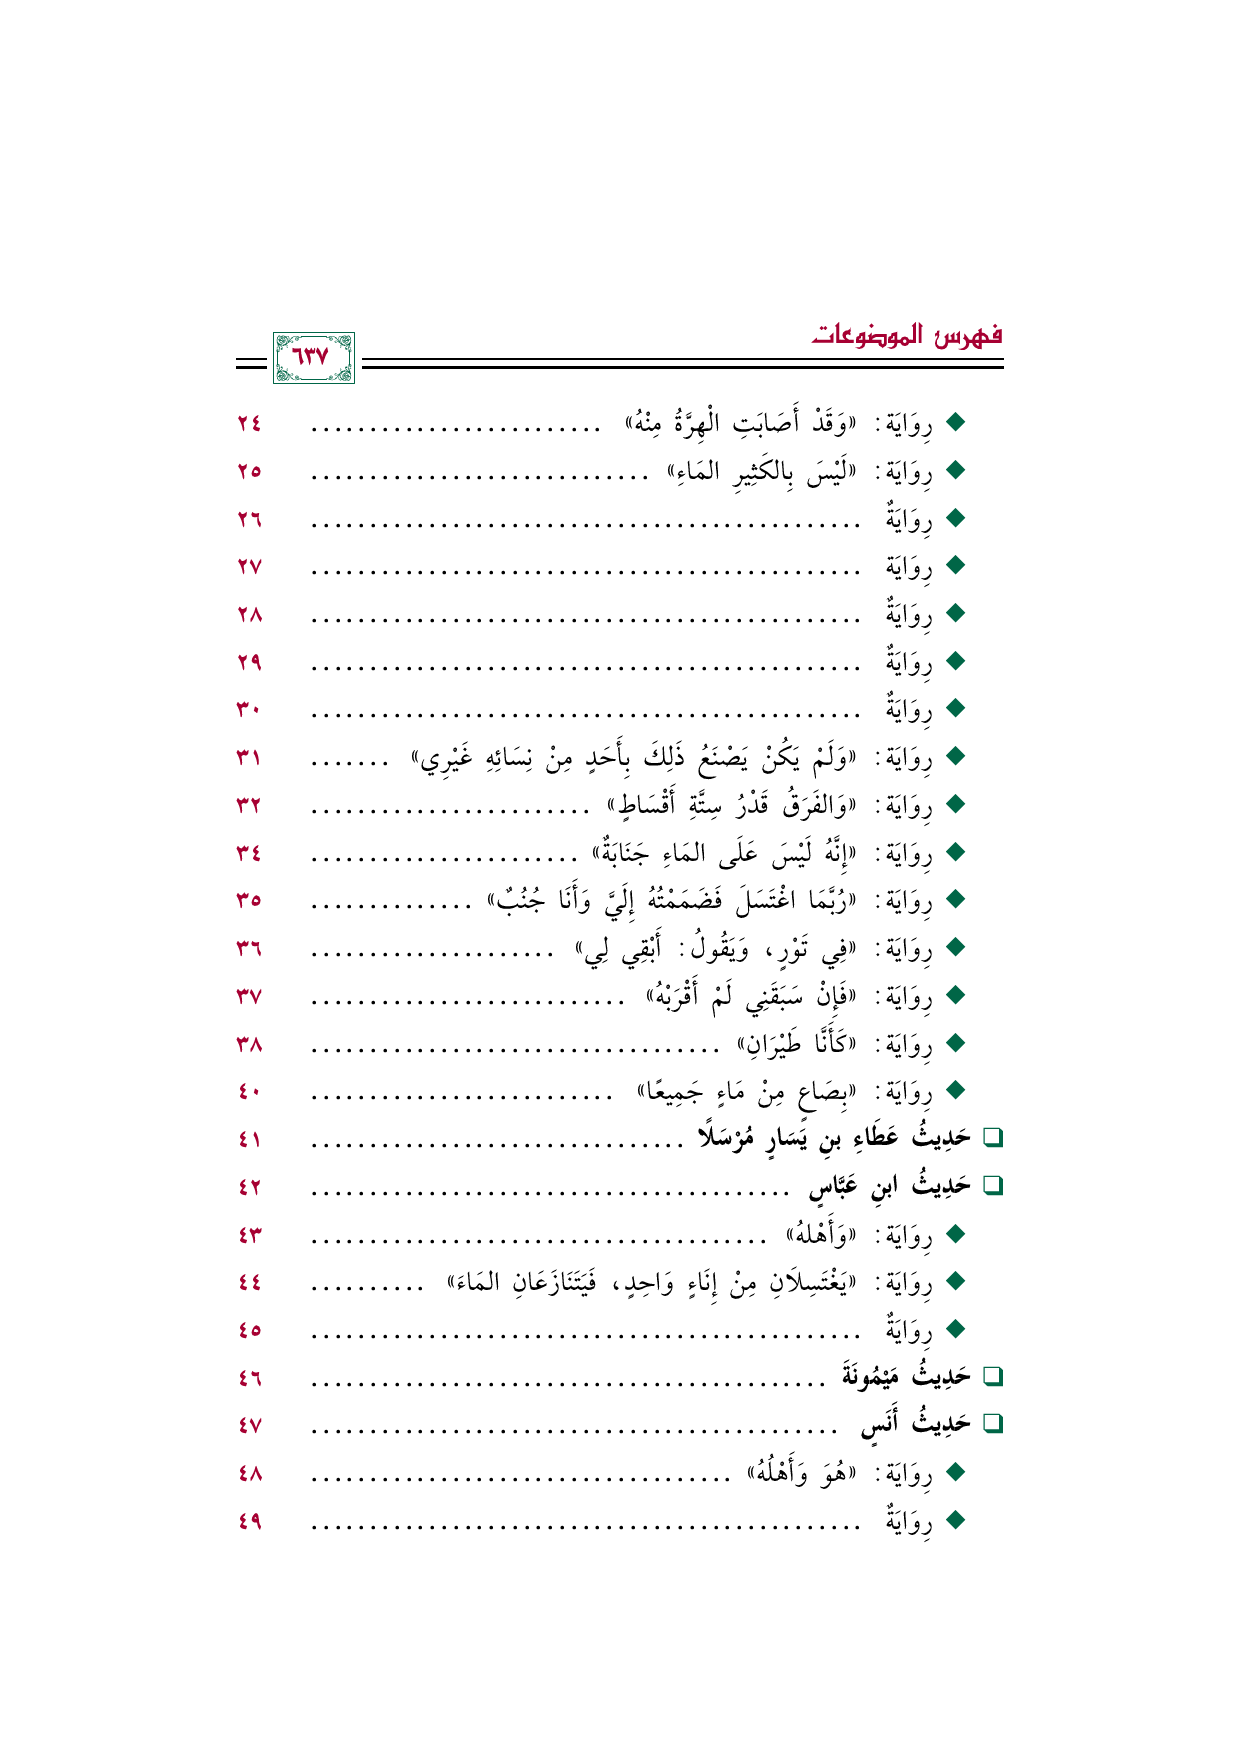 فهرس الموضوعات
٦٣٧
◆ رِوَايَة: «وَقَدْ أَصَابَتِ الْهِرَّةُ مِنْهُ» ......................... ٢٤
◆ رِوَايَة: «لَيْسَ بِالكَثِيرِ المَاءِ» ............................. ٢٥
◆ رِوَايَةٌ ............................................... ٢٦
◆ رِوَايَة ............................................... ٢٧
◆ رِوَايَةٌ ............................................... ٢٨
◆ رِوَايَةٌ ............................................... ٢٩
◆ رِوَايَةٌ ............................................... ٣٠
◆ رِوَايَة: «وَلَمْ يَكُنْ يَصْنَعُ ذَلِكَ بِأَحَدٍ مِنْ نِسَائِهِ غَيْرِي» ....... ٣١
◆ رِوَايَة: «وَالفَرَقُ قَدْرُ سِتَّةِ أَقْسَاطٍ» ........................ ٣٢
◆ رِوَايَة: «إِنَّهُ لَيْسَ عَلَى المَاءِ جَنَابَةٌ» ....................... ٣٤
◆ رِوَايَة: «رُبَّمَا اغْتَسَلَ فَضَمَمْتُهُ إِلَيَّ وَأَنَا جُنُبٌ» .............. ٣٥
◆ رِوَايَة: «فِي تَوْرٍ، وَيَقُولُ: أَبْقِي لِي» ..................... ٣٦
◆ رِوَايَة: «فَإِنْ سَبَقَنِي لَمْ أَقْرَبْهُ» ........................... ٣٧
◆ رِوَايَة: «كَأَنَّا طَيْرَانِ» ................................... ٣٨
◆ رِوَايَة: «بِصَاعٍ مِنْ مَاءٍ جَمِيعًا» .......................... ٤٠
❑ حَدِيثُ عَطَاءِ بنِ يَسَارٍ مُرْسَلًا ................................ ٤١
❑ حَدِيثُ ابنِ عَبَّاسٍ ......................................... ٤٢
◆ رِوَايَة: «وَأَهْلهُ» ....................................... ٤٣
◆ رِوَايَة: «يَغْتَسِلَانِ مِنْ إِنَاءٍ وَاحِدٍ، فَيَتَنَازَعَانِ المَاءَ» .......... ٤٤
◆ رِوَايَةٌ ............................................... ٤٥
❑ حَدِيثُ مَيْمُونَةَ ............................................ ٤٦
❑ حَدِيثُ أَنَسٍ ............................................. ٤٧
◆ رِوَايَة: «هُوَ وَأَهْلُهُ» .................................... ٤٨
◆ رِوَايَةٌ ............................................... ٤٩